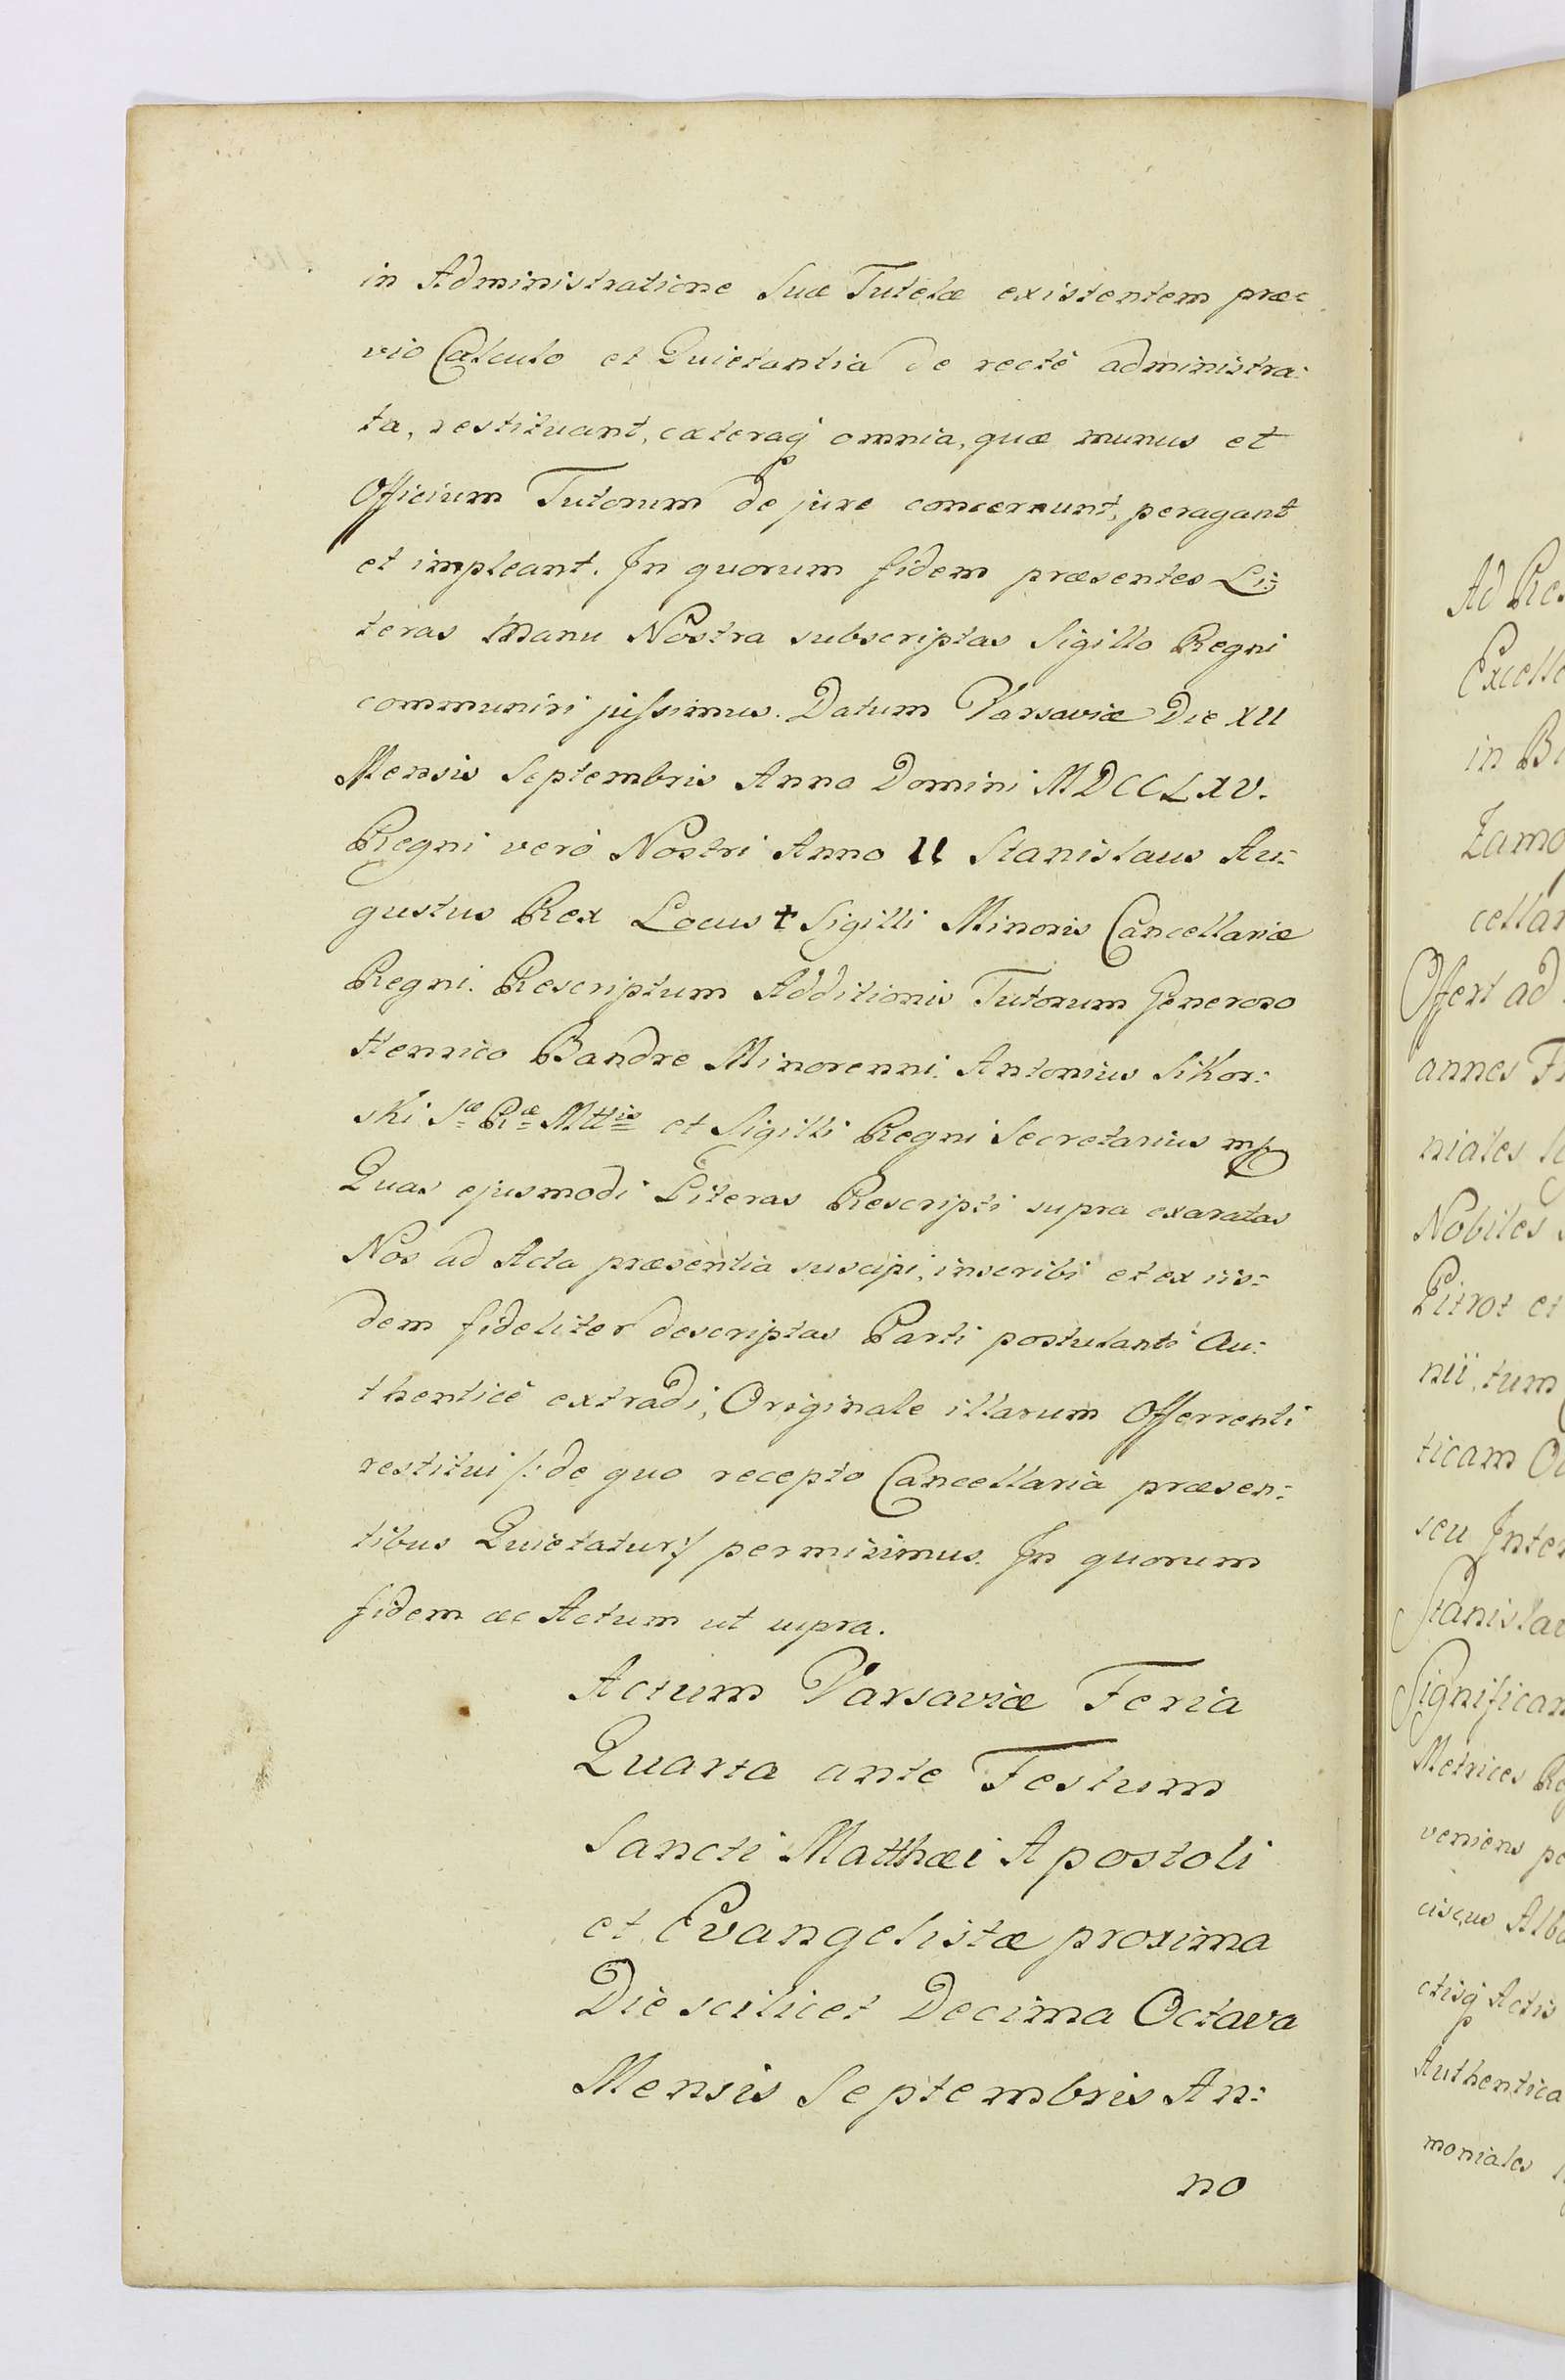 in Administratione Suæ Tutelæ existentem præ=
vio Calculo et Quietantia de rectè administra:
ta, restituant, cæteraq́ omnia, quæ munus et
Officium Tutorum de jure concernunt, peragant
et impleant. In quorum fidem præsentes Li=
teras Manu Nostra subscriptas Sigillo Regni
communiri jussimus. Datum Varsaviæ Die XII
Mensis Septembris Anno Domini MDCCLXV.
Regni verò Nostri Anno II Stanislaus Au:
gustus Rex Locus + Sigilli Minoris Cancellariæ
Regni. Rescriptum Additionis Tutorum Generoso
Henrico Bandre Minorenni. Antonius Sikor:
ski Sæ Ræ Mttis et Sigilli Regni Secretarius mp
Quas ejusmodi Literas Rescripti supra exaratas
Nos ad Acta præsentia suscipi, inscribi et ex iis:
dem fideliter descriptas Parti postulanti Au:
thenticè extradi, Originale illarum Offerrenti
restitui /: de quo recepto Cancellaria præsen:
tibus Quietatur :/ permisimus. In quorum
fidem &c Actum ut supra.
Actum Varsaviæ Feria
Quarta ante Festum
Sancti Matthæi Apostoli
et Evangelistæ proxima
Die scilicet Decima Octava
Mensis Septembris An:
no
Ad Res
Excelle
in B
Zamo
cellar
Offert ad
annes F
niales
Nobiles
Pitrot et
nii, tum
ticam
seu Inter
Stanislai
Significan
Metrices Re
veniens pe
ciscus Alb
ctisq́ Actis
Authentica
moniales